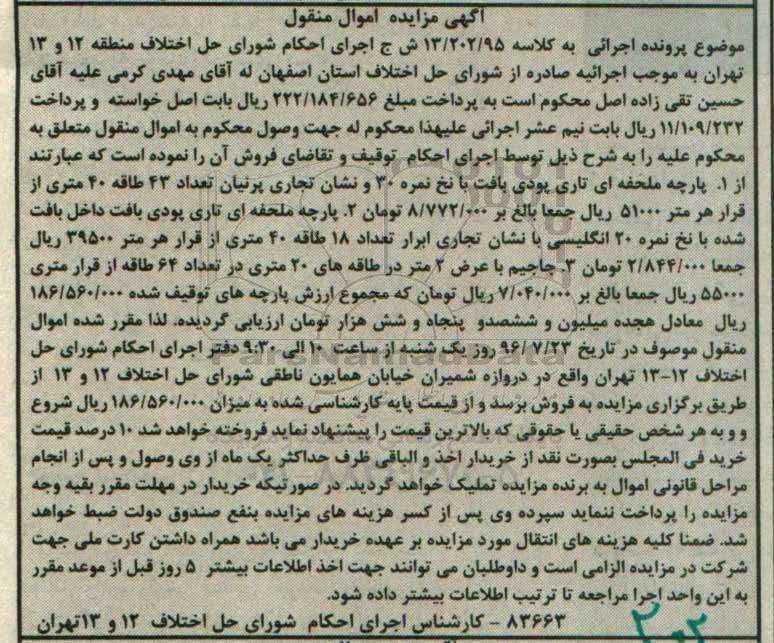 آگهی مزایده اموال منقول
موضوع پرونده اجرائی به کلاسه ۱۳/۲۰۲/۹۵ ش ج اجرای احکام شورای حل اختلاف منطقه ۱۲ و ۱۳
تهران به موجب اجرائیه صادره از شورای حل اختلاف استان اصفهان له آقای مهدی کرمی علیه آقای
حسین تقی زاده اصل محکوم است به پرداخت مبلغ ۲۲۲/۱۸۴/۶۵۶ ریال بابت اصل خواسته و پرداخت
۱۱/۱۰۹/۲۳۲ ریال بابت نیم عشر اجرائی علیهذا محکوم له جهت وصول محکوم به اموال منقول متعلق به
محکوم علیه را به شرح ذیل توسط اجرای احکام توقیف و تقاضای فروش آن را نموده است که عبارتند
از ۱. پارچه ملحفه ای تاری پودی بافت با نخ نمره ۳۰ و نشان تجاری پرنیان تعداد ۴۳ طاقه ۴۰ متری از
قرار هر متر ۵۱۰۰۰ ریال جمعا بالغ بر ۸/۷۷۲/۰۰۰ تومان ۲. پارچه ملحفه ای تاری پودی بافت داخل بافت
شده با نخ نمره ۲۰ انگلیسی با نشان تجاری ابرار تعداد ۱۸ طاقه ۴۰ متری از قرار هر متر ۳۹۵۰۰ ریال
جمعا ۲/۸۴۴/۰۰۰ تومان ۳. جاجیم با عرض ۲ متر در طاقه های ۲۰ متری در تعداد ۶۴ طاقه از قرار متری
۵۵۰۰۰ ریال جمعا بالغ بر ۷/۰۴۰/۰۰۰ ریال تومان که مجموع ارزش پارچه های توقیف شده ۱۸۶/۵۶۰/۰۰۰
ریال معادل هجده میلیون و ششصدو پنجاه و شش هزار تومان ارزیابی گردیده. لذا مقرر شده اموال
منقول موصوف در تاریخ ۹۶/۷/۲۳ روز یک شنبه از ساعت ۱۰ الی ۹:۳۰ دفتر اجرای احکام شورای حل
اختلاف ۱۲-۱۳ تهران واقع در دروازه شمیران خیابان همایون ناطقی شورای حل اختلاف ۱۲ و ۱۳ از
طریق برگزاری مزایده به فروش برسد و از قیمت پایه کارشناسی شده به میزان ۱۸۶/۵۶۰/۰۰۰ ریال شروع
و و به هر شخص حقیقی یا حقوقی که بالاترین قیمت را پیشنهاد نماید فروخته خواهد شد ۱۰ درصد قیمت
خرید فی المجلس بصورت نقد از خریدار اخذ و الباقی ظرف حداکثر یک ماه از وی وصول و پس از انجام
مراحل قانونی اموال به برنده مزایده تملیک خواهد گردید. در صورتیکه خریدار در مهلت مقرر بقیه وجه
مزایده را پرداخت ننماید سپرده وی پس از کسر هزینه های مزایده بنفع صندوق دولت ضبط خواهد
شد. ضمنا کلیه هزینه های انتقال مورد مزایده بر عهده خریدار می باشد همراه داشتن کارت ملی جهت
شرکت در مزایده الزامی است و داوطلبان می توانند جهت اخذ اطلاعات بیشتر ۵ روز قبل از موعد مقرر
به این واحد اجرا مراجعه تا ترتیب اطلاعات بیشتر داده شود.
۸۳۶۶۳ - کارشناس اجرای احکام شورای حل اختلاف ۱۲ و ۱۳تهران